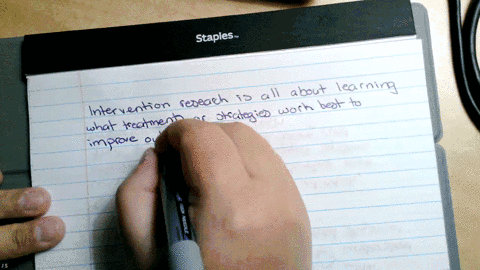 Staples
Intervention reseach is all about learning
what treatments or strategies work best to
improve